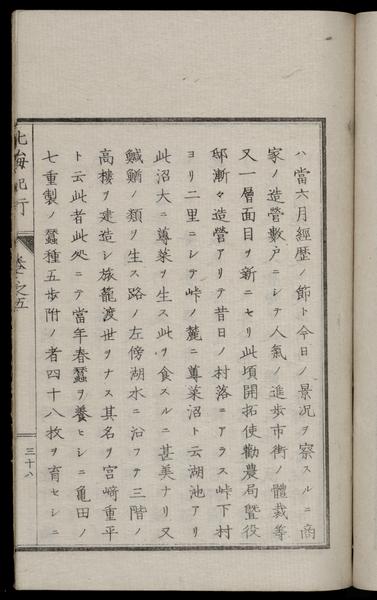 ハ當六月經歷ノ節ト今日ノ景況ヲ察スルニ商
家ノ造營數戸ニシテ人氣ノ進歩市街ノ體裁等
又一層面目ヲ新ニセリ此頃開拓使勸農局曁役
邸漸々造營アリテ昔日ノ村落ニアラス峠下村
ヨリ二里ニシテ峠ノ麓ニ蓴菜沼ト云湖池アリ
此沼大ニ蓴菜ヲ生ス此ヲ食スルニ甚美ナリ又
ノ類ヲ生ス路ノ左傍湖水ニ沿フテ三階ノ
高樓ヲ建造シ旅籠渡世ヲナス其名ヲ宮﨑重平
ト云此者此処ニテ當年春蠶ヲ養ヒシニ亀田ノ
七重製ノ蠶種五歩附ノ者四十八枚ヲ育セシニ
北海紀行
卷之五
三十八